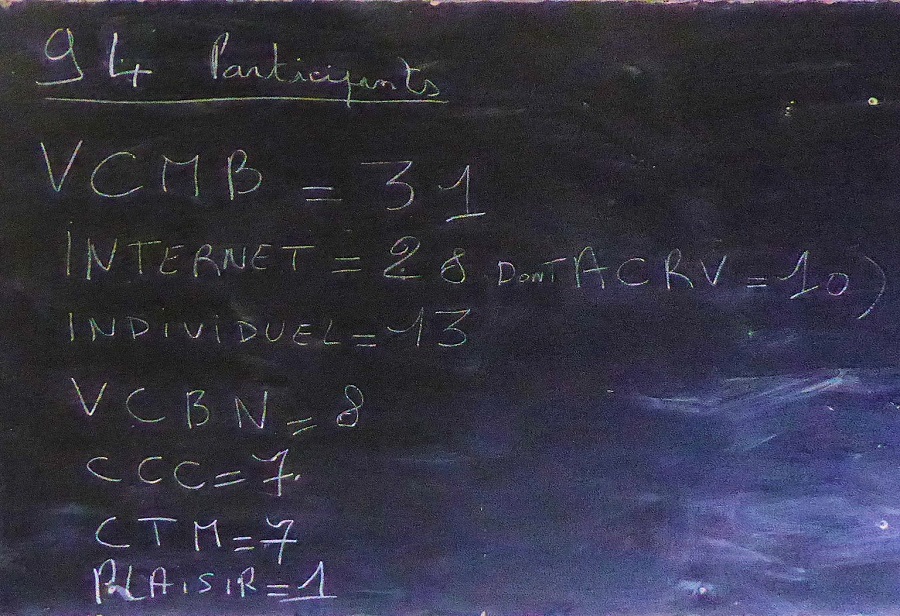 94 Participants
VCMB = 31
INTERNET = 28 DONT ACRV = 10)
INDIVIDUEL = 13
VCBN = 8
CCC = 7.
CTM = 7
PLAISIR = 1